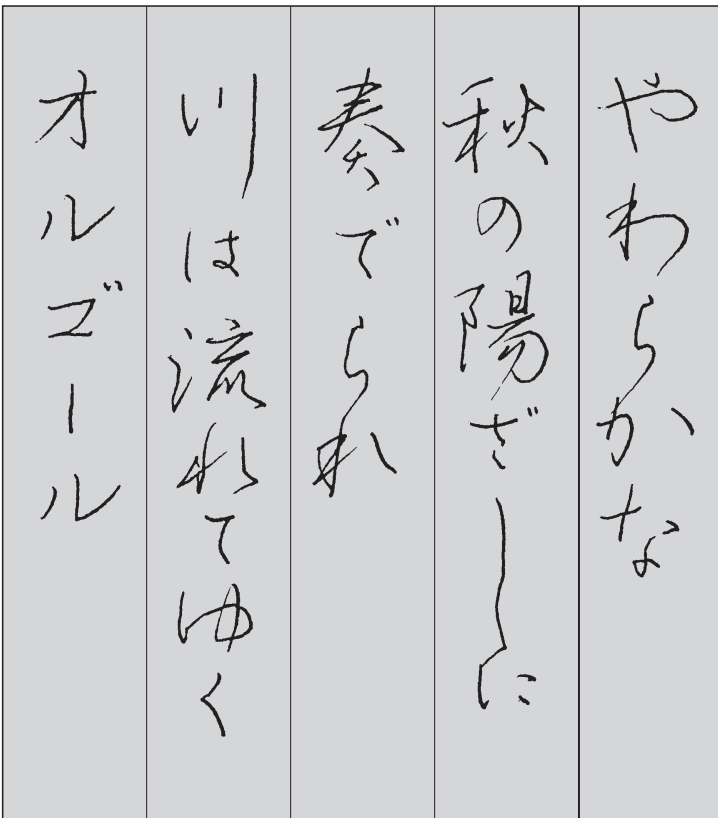 やわらかな
秋の陽ざしに
奏でられ
川は流れてゆく
オルゴール